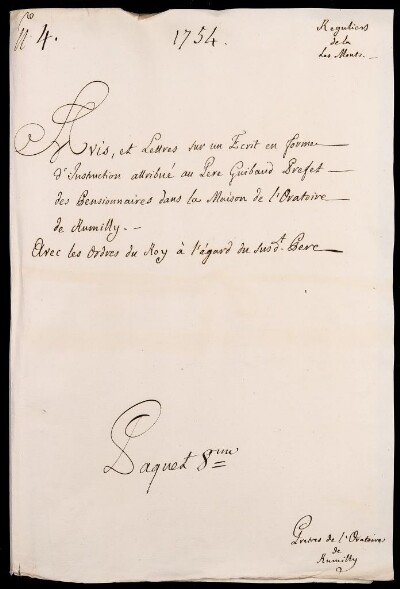 N.º 4.
1754.
Reguliers
de la
des Monts. —
Avis, et Lettres sur un Ecrit en forme
d'Instruction attribué au Pere Guibaud Prefet
des Pensionnaires dans la Maison de l'Oratoire
de Rumilly. —
Avec les Ordres du Roy à l'égard du susd.t Pere
Paquet 8.me
Pretres de l'Oratoire
de
Rumilly